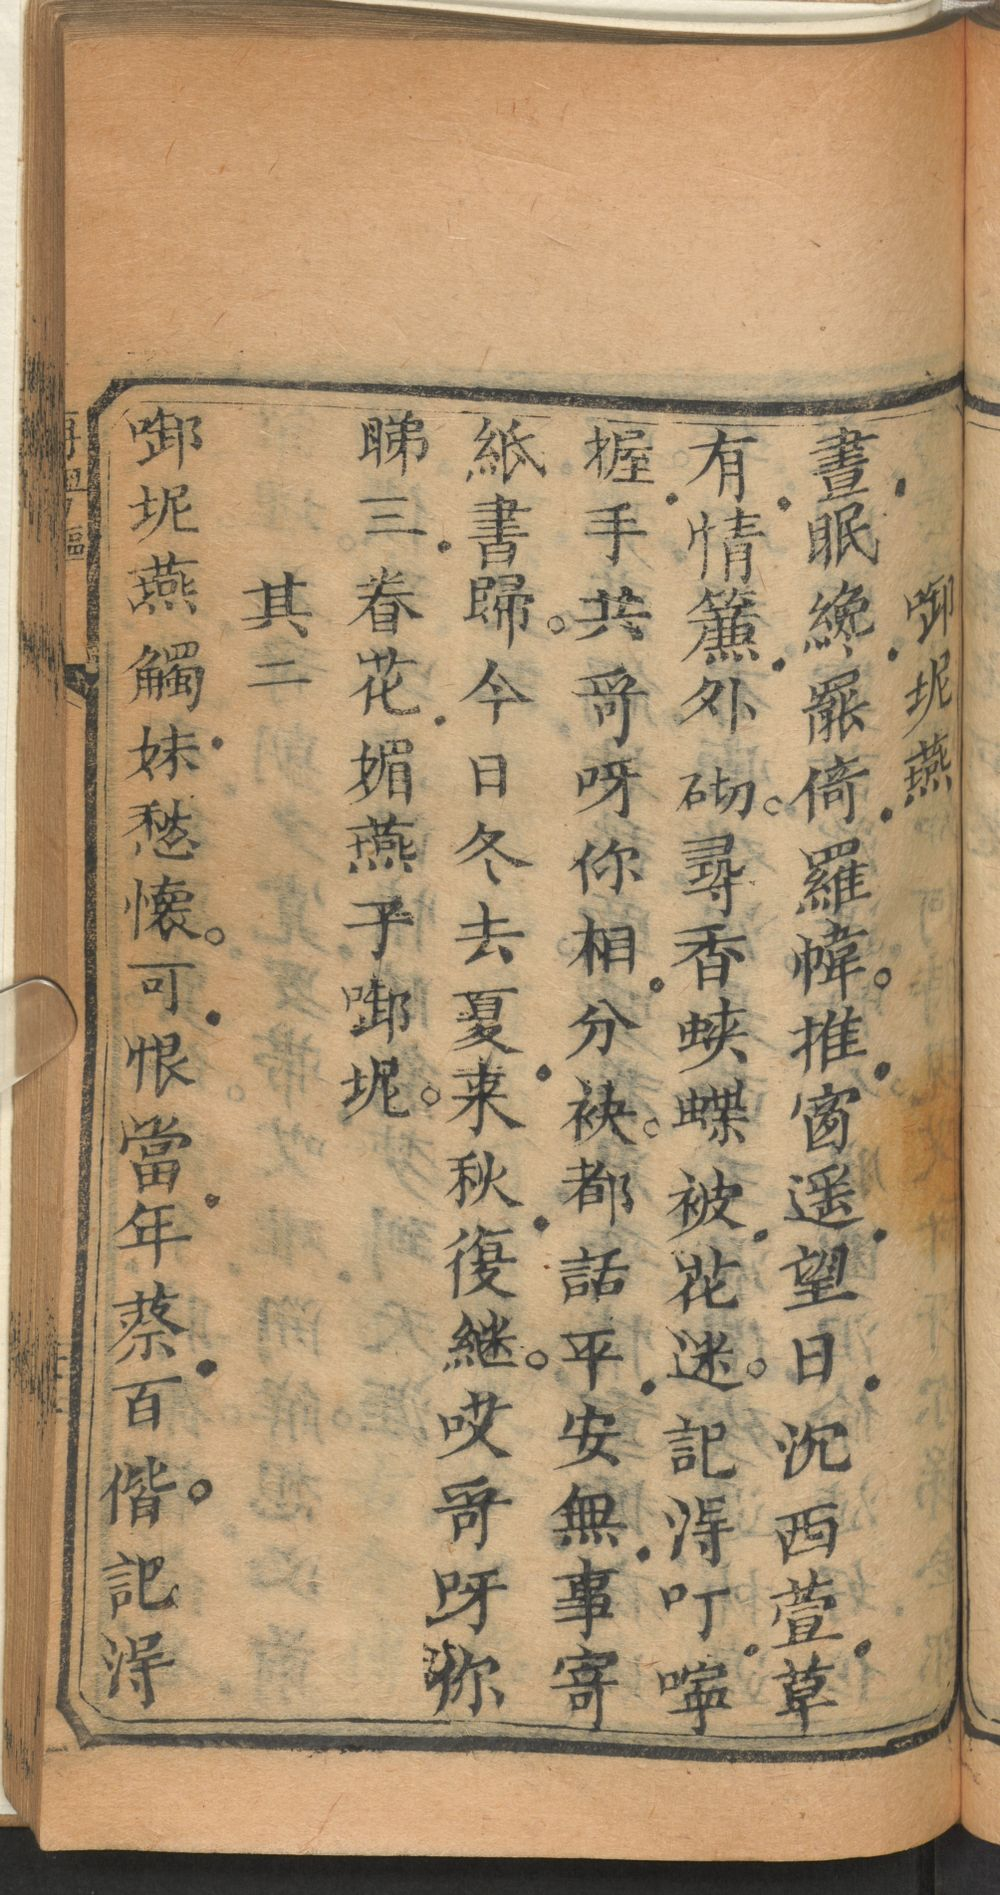 啣坭燕
晝眠纔罷倚羅幃。推窗遥望日沉西萱草
有情簾外砌。尋香蛱蝶被花迷。記淂叮嚀
握手共哥呀你相分袂。都話平安無事寄
紙書歸。今日冬去夏来秋復継。哎哥呀你
睇三眷花媚燕子啣坭。
其二
啣坭燕觸妹愁懷。可恨當年蔡百偕。記淂
再粤謳